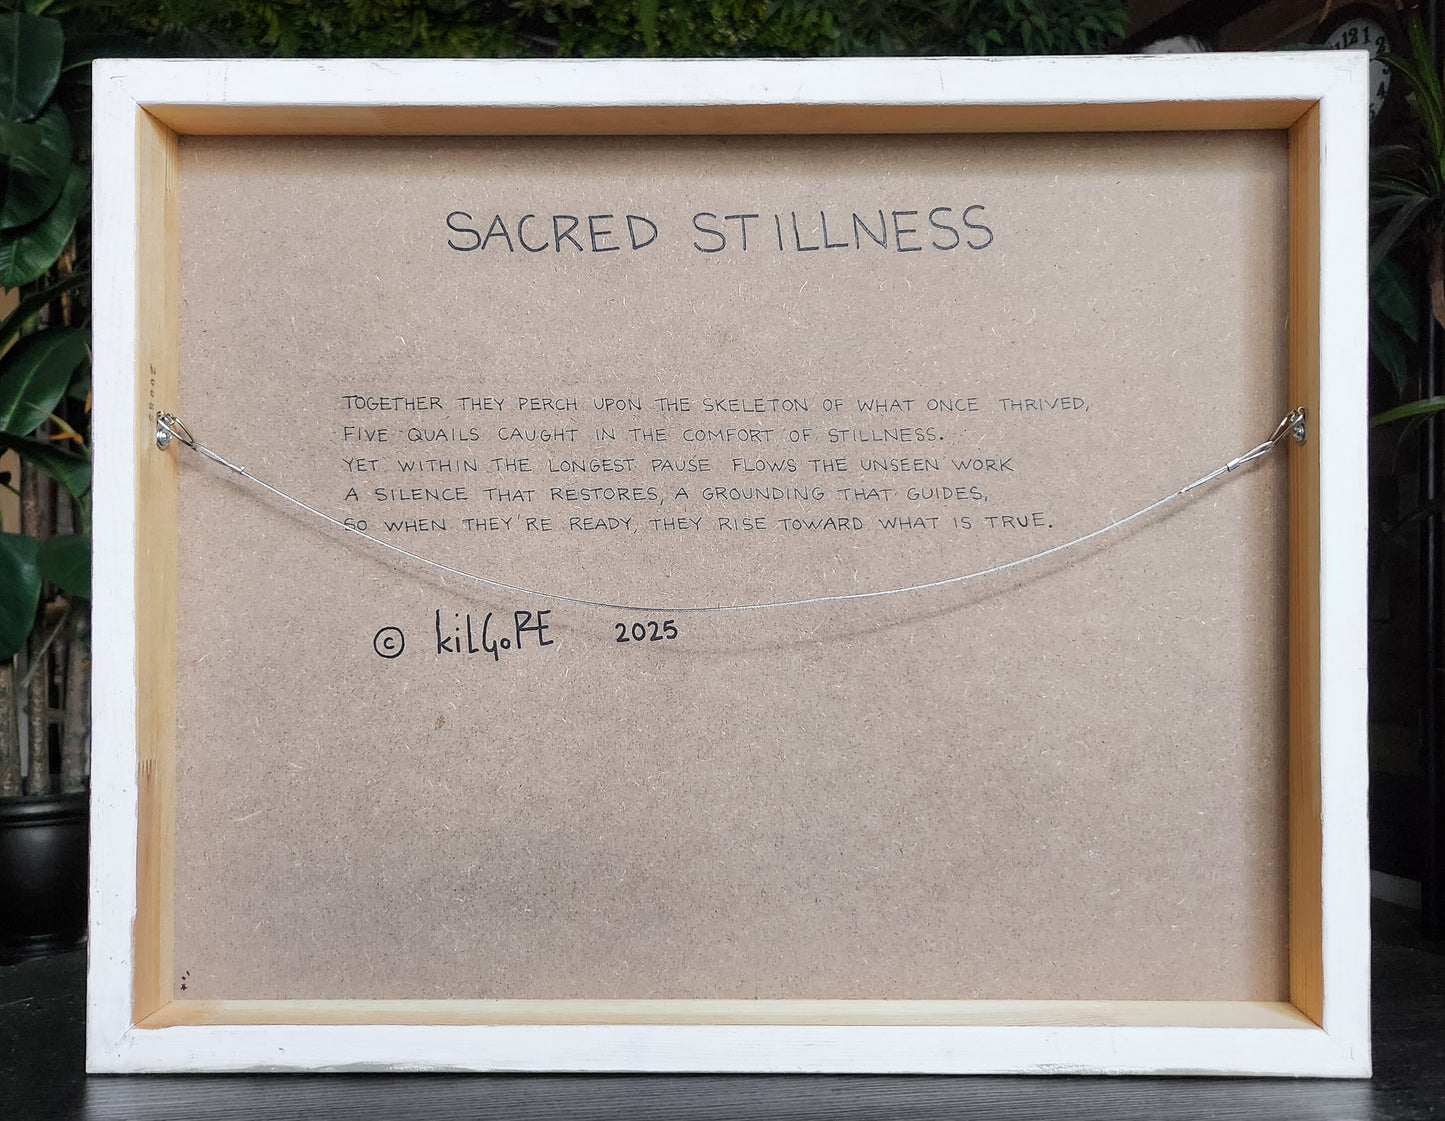 SACRED STILLNESS
TOGETHER THEY PERCH UPON THE SKELETON OF WHAT ONCE THRIVED,
FIVE QUAILS CAUGHT IN THE COMFORT OF STILLNESS.
YET WITHIN THE LONGEST PAUSE FLOWS THE UNSEEN WORK
A SILENCE THAT RESTORES, A GROUNDING THAT GUIDES,
SO WHEN THEY'RE READY, THEY RISE TOWARD WHAT IS TRUE.
© kiLGoRE 2025